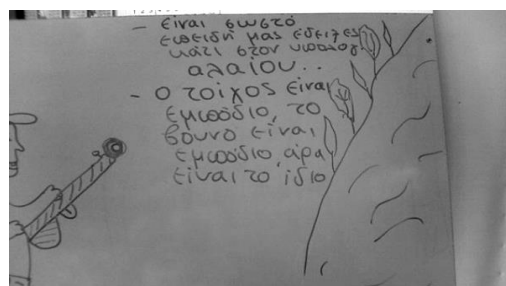 - είναι σωστό
επειδή μας έδειξες
κάτι στον υπολογ
αλαίου..
- Ο τοίχος είναι
εμπόδιο, το
βουνό είναι
εμπόδιο, άρα
είναι το ίδιο